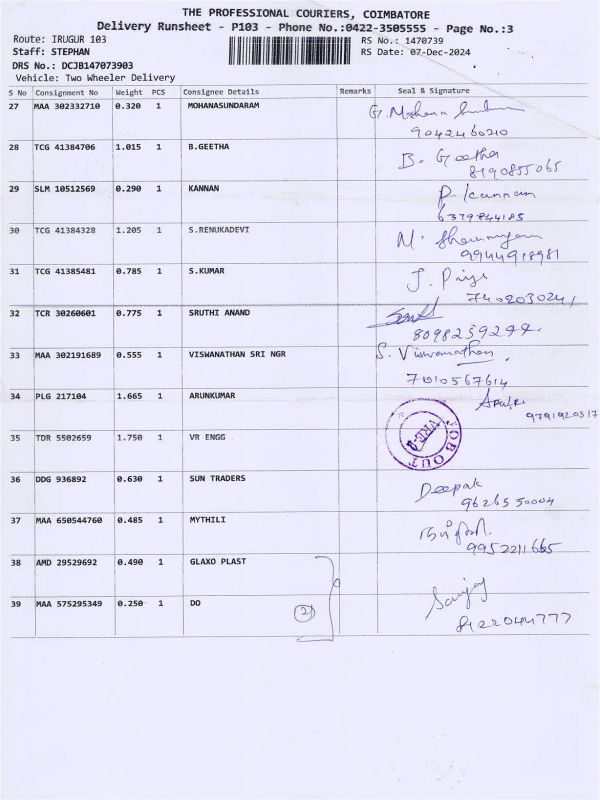 THE PROFESSIONAL COURIERS, COIMBATORE
Delivery Runsheet - P103 - Phone No.:0422-3505555 - Page No.:3
Route: IRUGUR 103 RS No.: 1470739
Staff: STEPHAN RS Date: 07-Dec-2024
DRS No.: DCJB147073903
Vehicle: Two Wheeler Delivery
S No Consignment No Weight PCS Consignee Details Remarks Seal & Signature
27 MAA 302332710 0.320 1 MOHANASUNDARAM G. Mohana
9042460210
28 TCG 41384706 1.015 1 B.GEETHA B. Geetha
8190855065
29 SLM 10512569 0.290 1 KANNAN P Kannan
6379844185
30 TCG 41384328 1.205 1 S.RENUKADEVI M.
9944918981
31 TCG 41385481 0.785 1 S.KUMAR J. Priya
740203024
32 TCR 30260601 0.775 1 SRUTHI ANAND
8098259244.
33 MAA 302191689 0.555 1 VISWANATHAN SRI NGR S. Viswanathan
7010567614
34 PLG 217104 1.665 1 ARUNKUMAR
9791920317
35 TDR 5502659 1.750 1 VR ENGG JOB OUT
36 DDG 936892 0.630 1 SUN TRADERS Deepak
9626550004
37 MAA 650544760 0.485 1 MYTHILI
9952211665
38 AMD 29529692 0.490 1 GLAXO PLAST
39 MAA 575295349 0.250 1 DO 2 Sanjay
8122044777